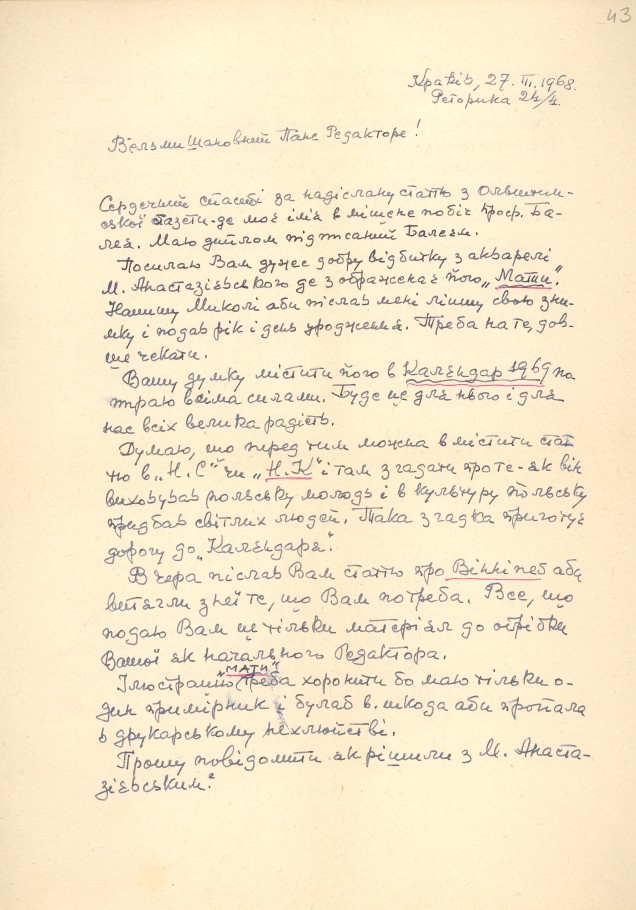 43
Краків, 27. III. 1968.
Реторика 24/4.
Вельмишановний Пане Редакторе!
Сердечний спасибі за надіслану статтю з Ольштин-
ської газети-де моє імя вміщене побіч проф. Ба-
лея. Маю диплом підписаний Балеєм.
Посилаю Вам дуже добру відбитку з акварелі
М. Анастазієвського де зображена його „Мати".
Напишу Миколі аби післав мені ліпшу свою зни-
мку і подав рік і день уродження. Треба на те, дов-
ше чекати.
Вашу думку містити його в Календар 1969 по
праю всіма силами. Буде це для нього і для
нас всіх велика радість.
Думаю, що перед тим можна вмістити стат
тю в „Н. С" чи „Н. К" і там згадати про те-як він
виховував польську молодь і в культуру польську
придбав світлих людей. Така згадка приготує
дорогу до „Календаря".
Вчера післав Вам статтю про Вінніпеб аби
витягли з неї те, що Вам потреба. Все, що
подаю Вам це тільки матеріял до обрібки
Вашої як начального Редактора.
„МАТИ"
Ілюстрацію треба хоронити бо маю тільки о-
дин примірник і булаб в. шкода аби пропала
в друкарському нехлюйстві.
Прошу повідомити як рішили з М. Анаста-
зієвським.